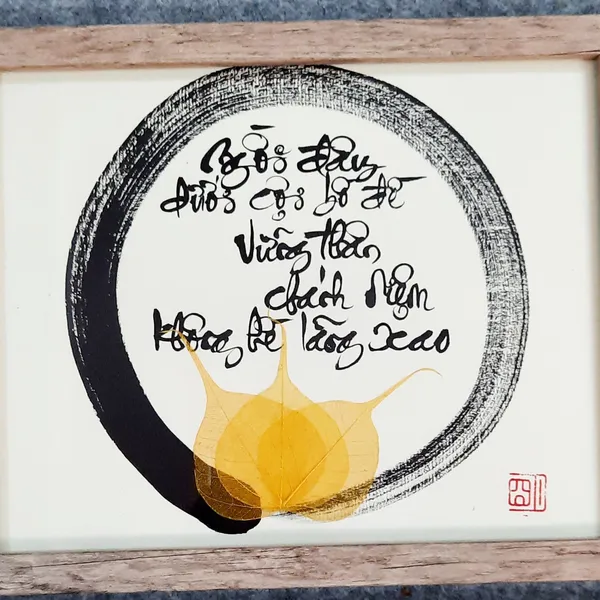 Ngồi đây
dưới cội bồ đề
Vững thân
chánh niệm
không hề lãng xao